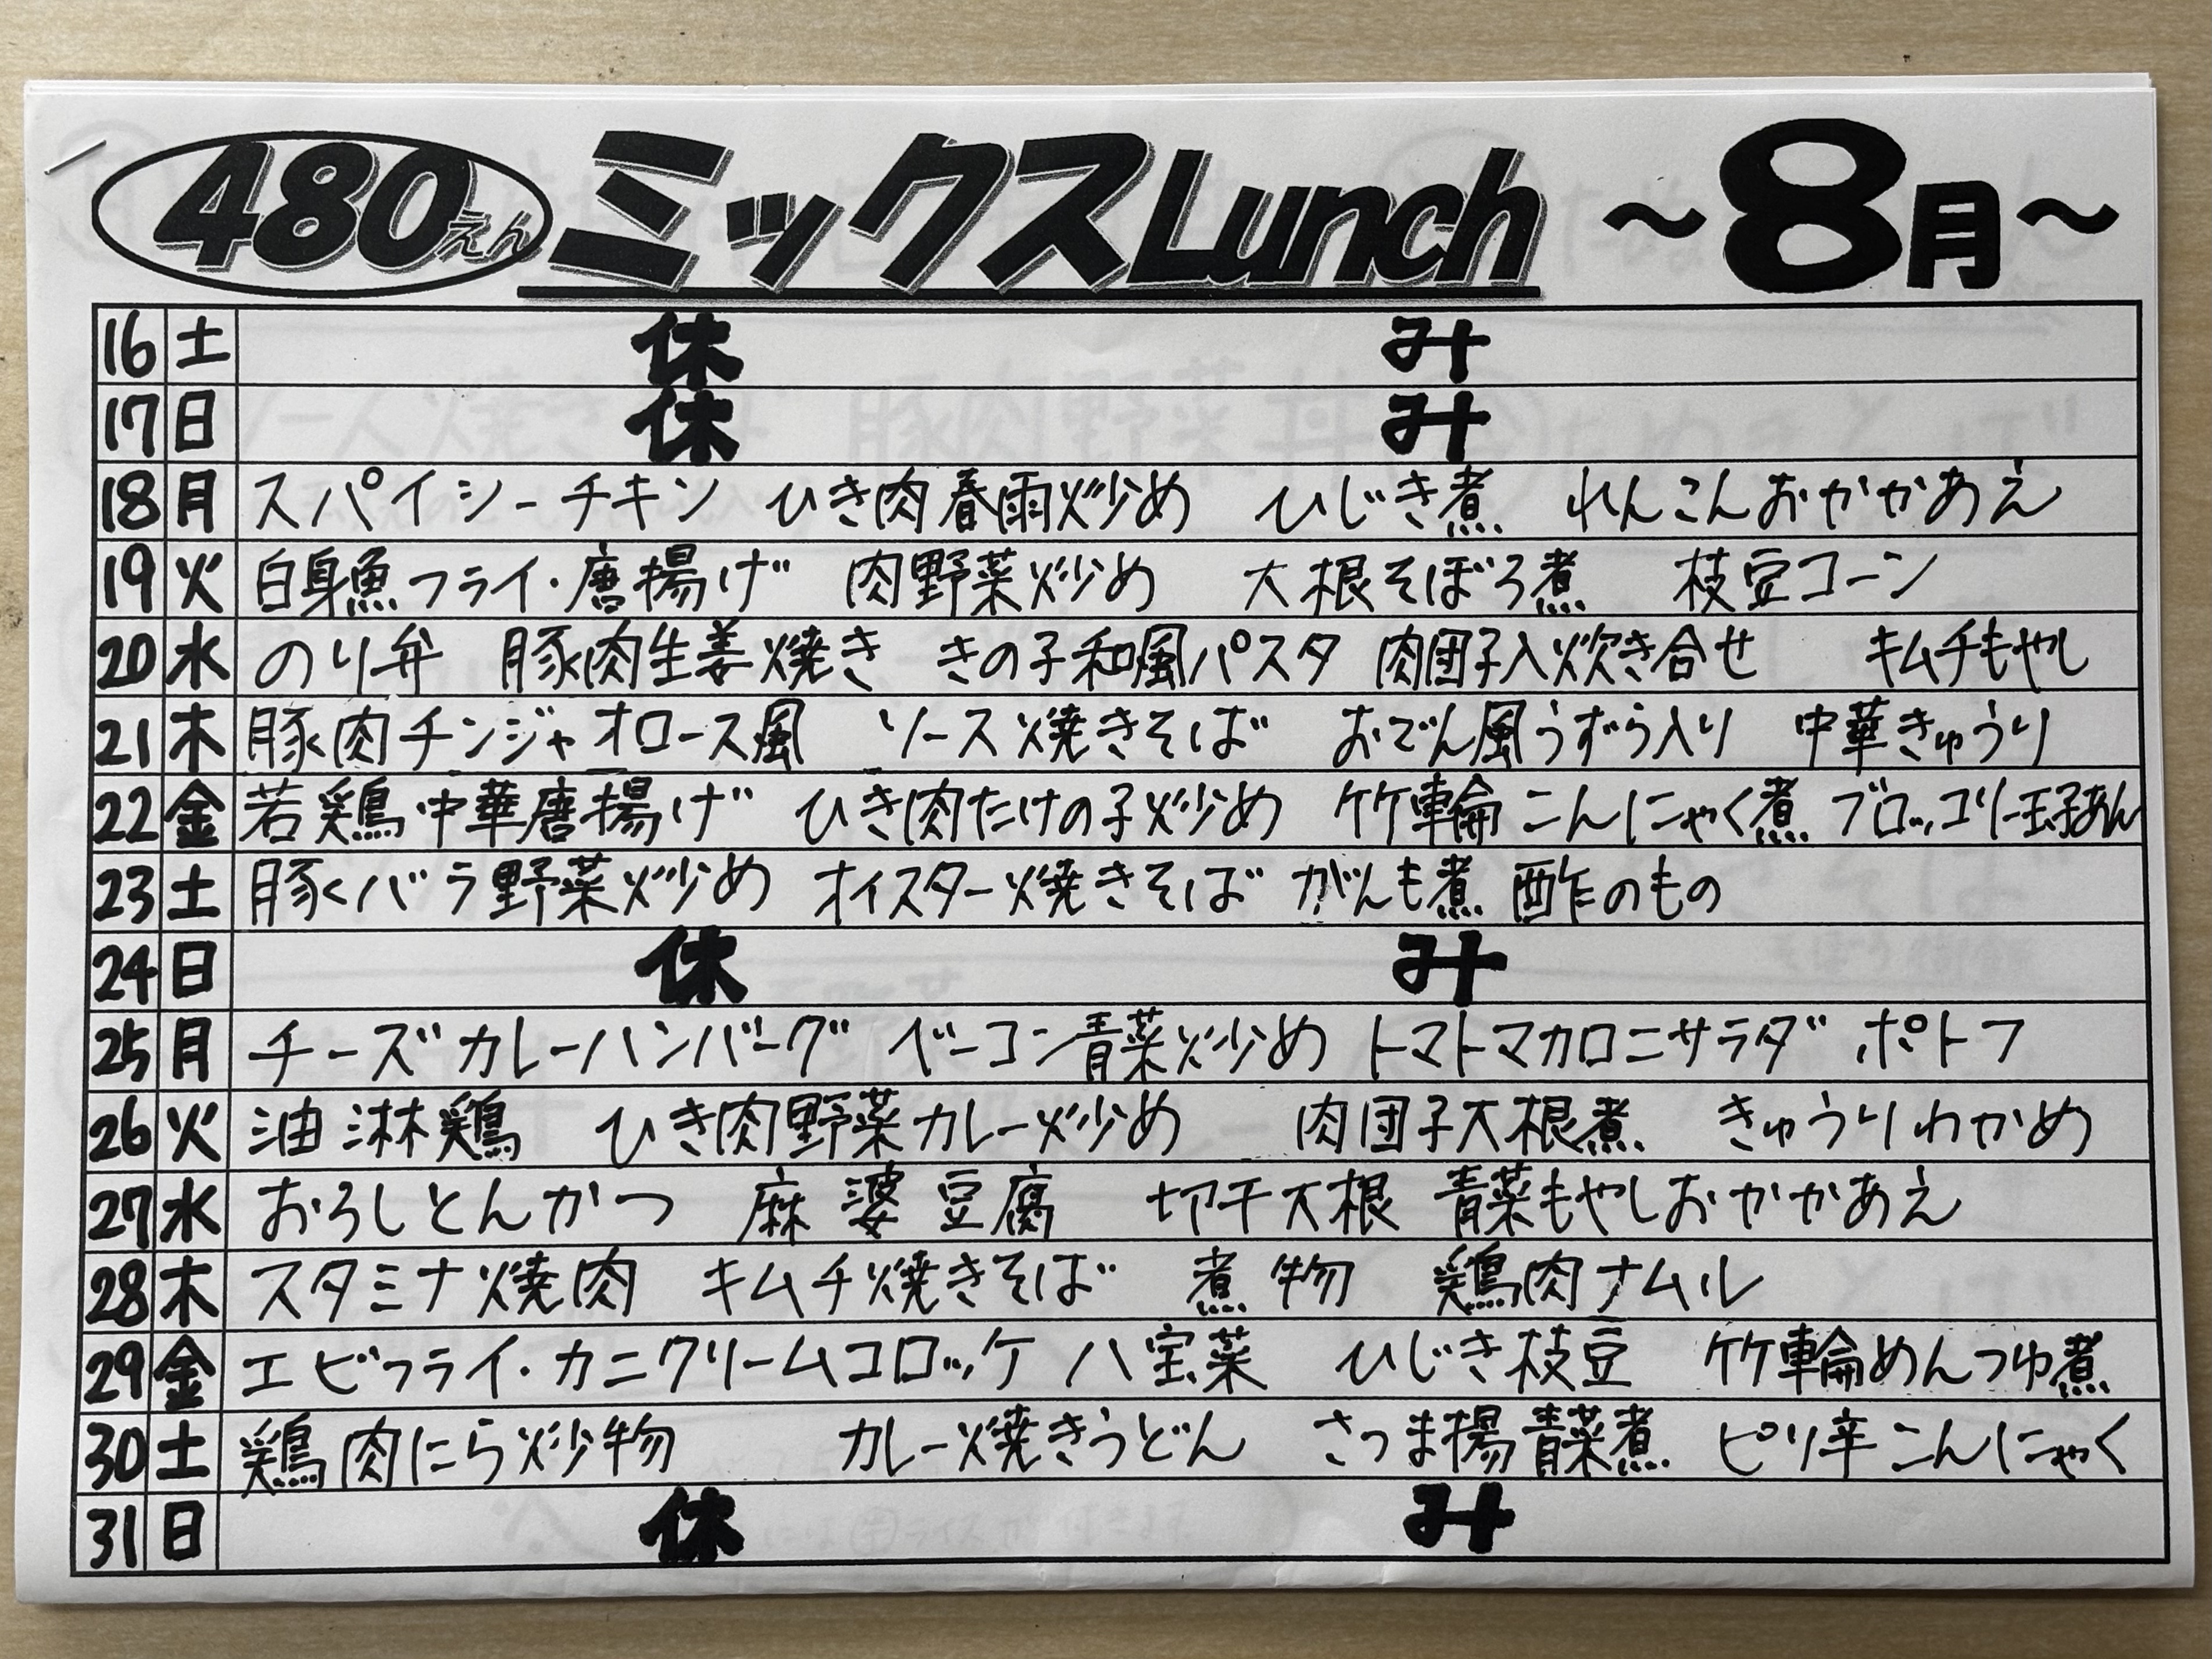 480えん ミックスLunch ～8月～
16 土 休み
17 日 休み
18 月 スパイシーチキン ひき肉春雨炒め ひじき煮 れんこんおかかあえ
19 火 白身魚フライ・唐揚げ 肉野菜炒め 大根そぼろ煮 枝豆コーン
20 水 のり弁 豚肉生姜焼き きの子和風パスタ 肉団子入炊き合せ キムチもやし
21 木 豚肉チンジャオロース風 ソース焼きそば おでん風うずら入り 中華きゅうり
22 金 若鶏中華唐揚げ ひき肉たけの子炒め 竹輪こんにゃく煮 ブロッコリー玉子あん
23 土 豚バラ野菜炒め オイスター焼きそば がんも煮 酢のもの
24 日 休み
25 月 チーズカレーハンバーグ ベーコン青菜炒め トマトマカロニサラダ ポトフ
26 火 油淋鶏 ひき肉野菜カレー炒め 肉団子大根煮 きゅうりわかめ
27 水 おろしとんかつ 麻婆豆腐 切干大根 青菜もやしおかかあえ
28 木 スタミナ焼肉 キムチ焼きそば 煮物 鶏肉ナムル
29 金 エビフライ・カニクリームコロッケ 八宝菜 ひじき枝豆 竹輪めんつゆ煮
30 土 鶏肉にら炒物 カレー焼きうどん さつま揚青菜煮 ピリ辛こんにゃく
31 日 休み